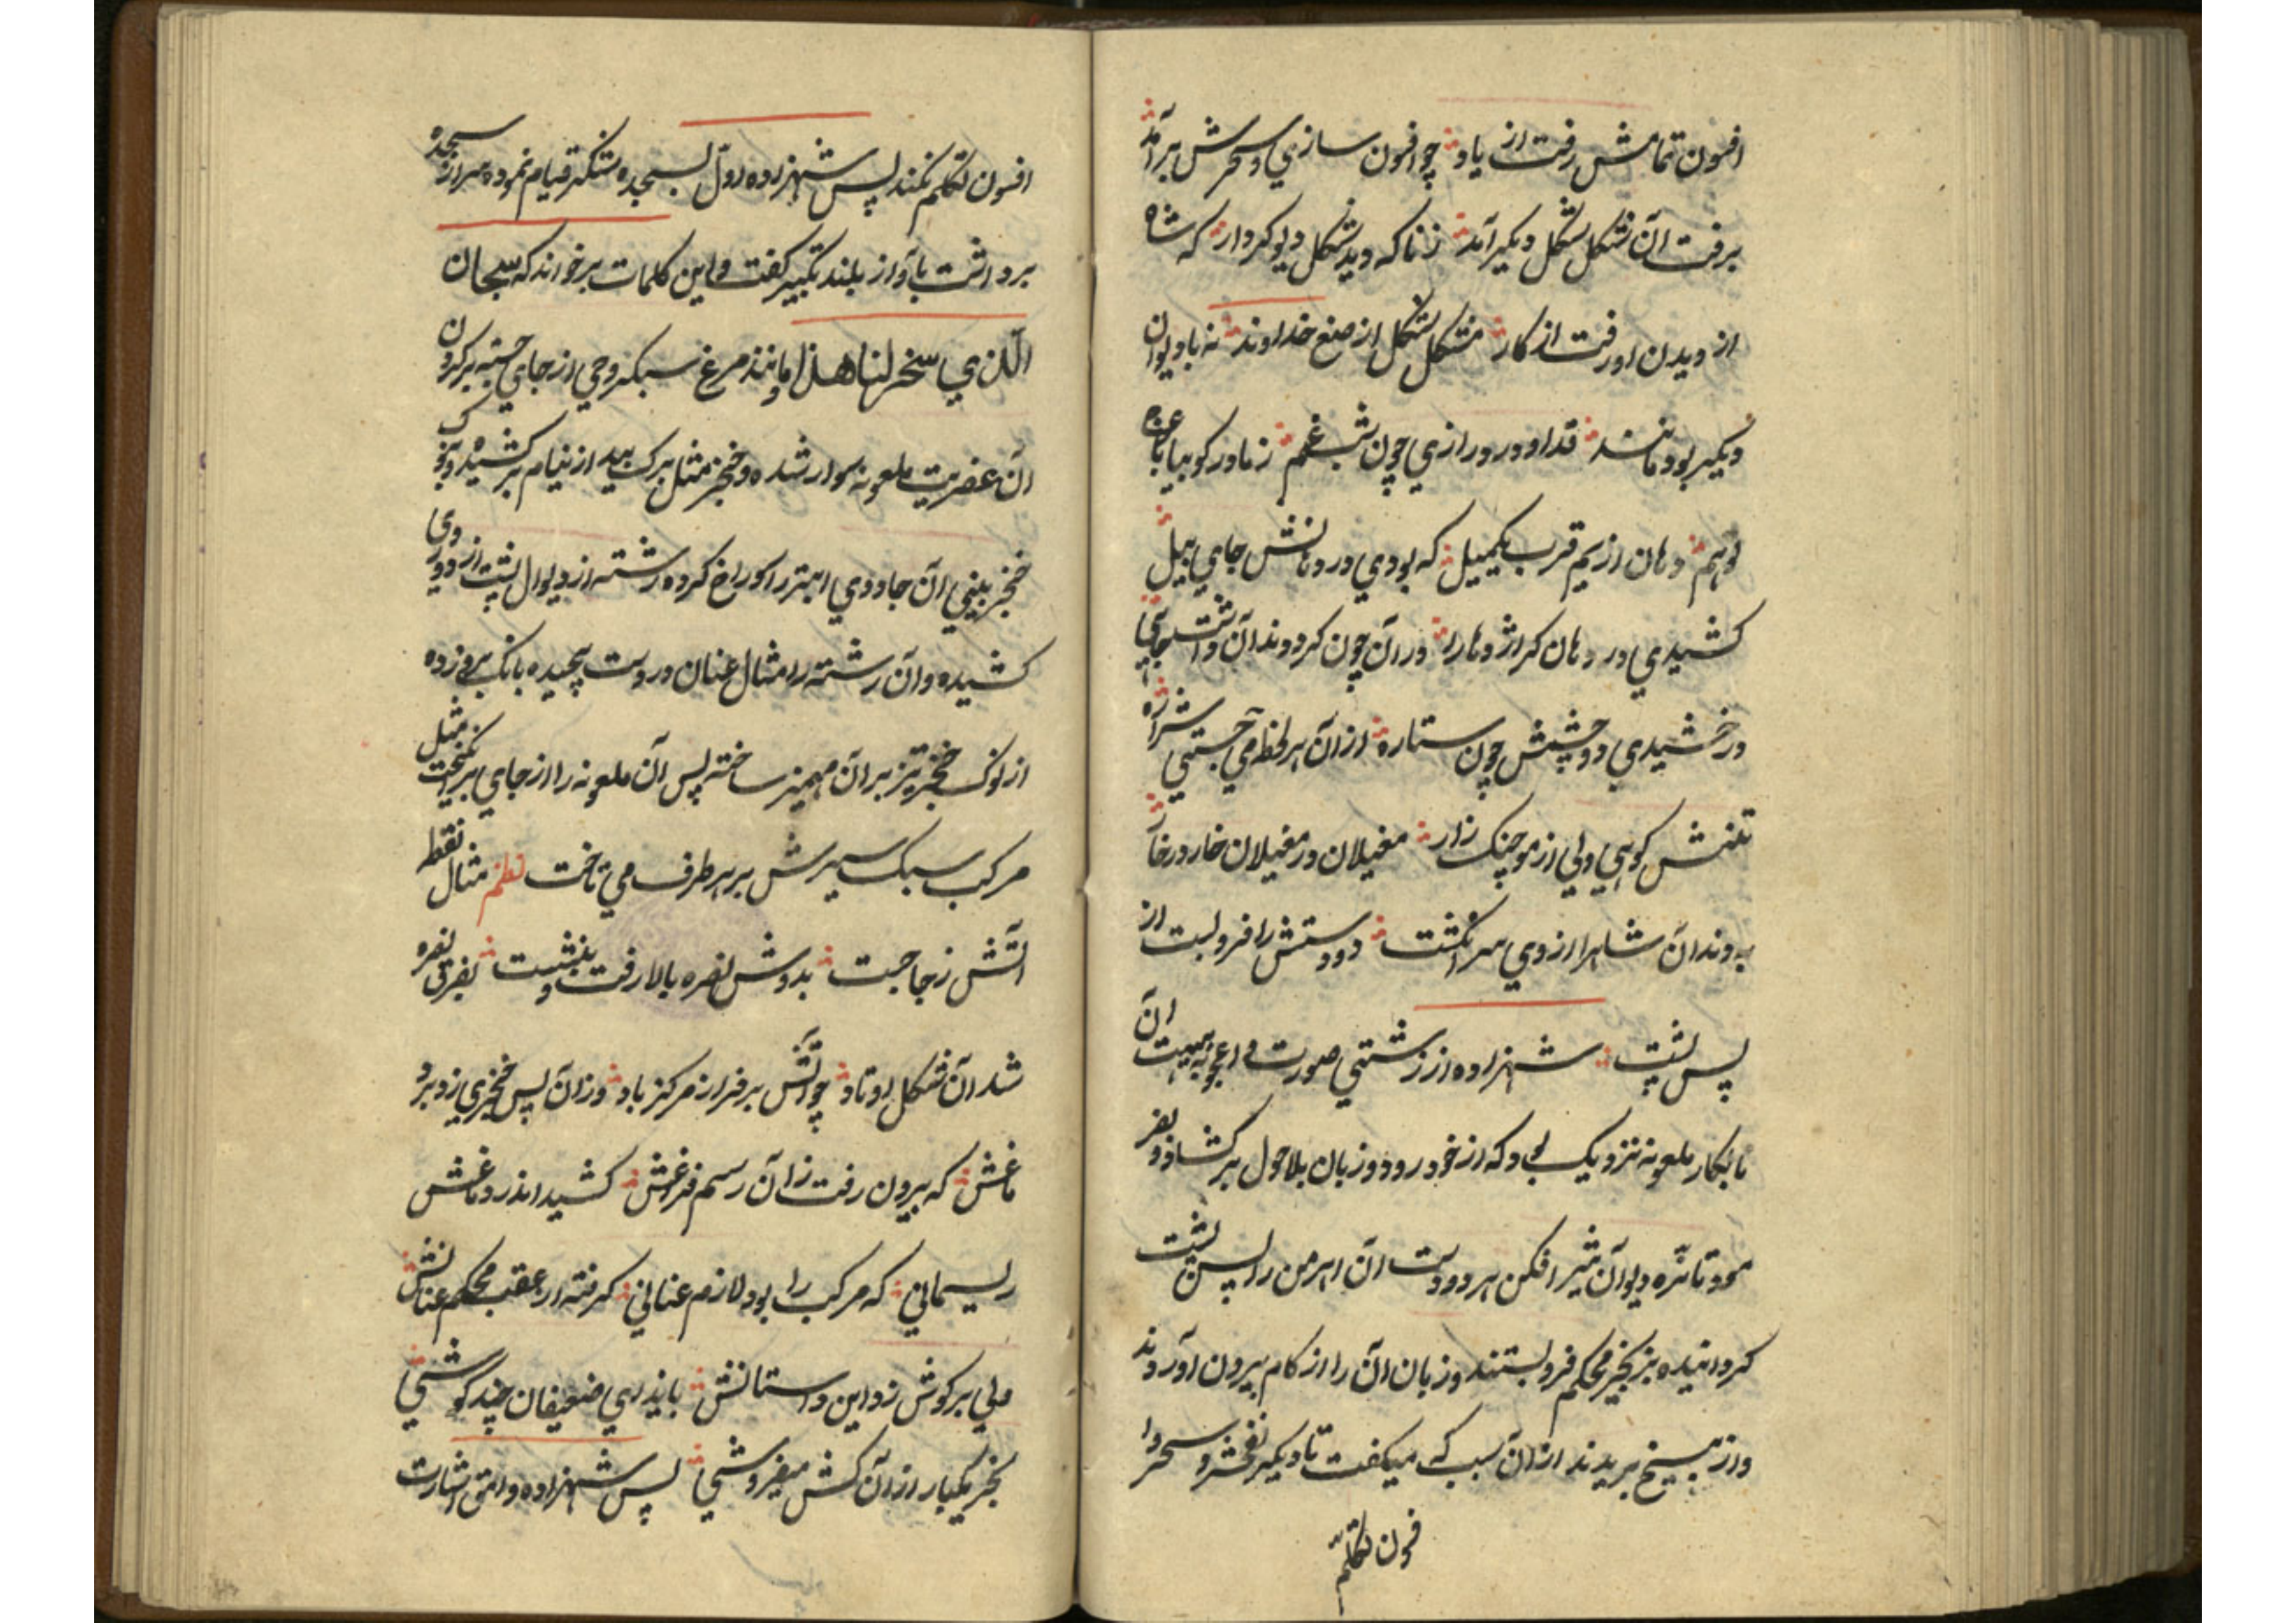 افسون تمامش رفت از یاد چو افسون سازی و سحرش برآمد
برفت آن شکل بشکل دیگر آمد زناکه دید شکل دیو کردار که شاه
از دیدن او رفت از کار مشکل بشکل از صنع خداوند نه با دیوان
دیگر بود مانند قد او در درازی چون شب غم ز مادر کو بیابان
توهم دهان از یم قرب یکمیل که بودی در دهانش جای پیل
کشیدی در دهان کر اژدها را در آن چون کرد دندان داشت جای
درخشیدی دو چشمش چون ستاره از آن هر لحظه می جستی شراره
تنش کوهی ولی از مو چنک زار مغیلان در مغیلان خار در خار
به دندان شاه را از وی سر انگشت دو دستش را فرو بست از
پس پشت شهزاده از زشتی صورت و اعجوبه هیبت آن
نابکار ملعونه نزدیک بود که از خود رود و زبان بلاحول برکشاد و بفر
مود تا نره دیوان شیر افکن هر دو دست آن اهرمن را پس پشت
کردانیده بزنجیر محکم فرو بستند و زبان آن را از کام بیرون آوردند
و از بیخ بریدند از آن سبب که میکفت تا دیکر سحر و
فسون تکلم
افسون تکلم نکند پس شهزاده اول بسجده شکر قیام نموده سر از سجده
برداشت بآواز بلند تکبیر کفت و این کلمات برخواند که سبحان
الذی سخر لنا هذا و مانند مرغ سبکروحی از جای جسته بر کردن
آن عفریت ملعونه سوار شده و خنجر مثل برک بید از نیام برکشیده و بنوک
خنجر بینی آن جادوی ابتر را سوراخ کرده رشته از دوال پشت از روی
کشیده و آن رشته را مثال عنان در دست پیچیده بانک بروزده
از نوک خنجر تیز بر آن مهمیز ساخته پس آن ملعونه را از جای برانکیخت مثل
مرکب سبک سیرش بر هر طرف می تاخت نظم مثال نقطه
آتش ز جا جست بدوش نعره بالا رفت و بنشست بفرق نعره
شد آن شکل او تاد چو آتش بر فراز مرکز باد وزان پس خنجری زد بر د
ماغش که بیرون رفت زان رسم فراغش کشید اندر دماغش
ریسمانی که مرکب را بود لازم عنانی کرفته از عقب محکم عنانش
ولی بر کوش زد این داستانش باینرای ضعیفان چند کوشی
بخر یکبار از آن کش میفروشی پس شهزاده وامق اشارت